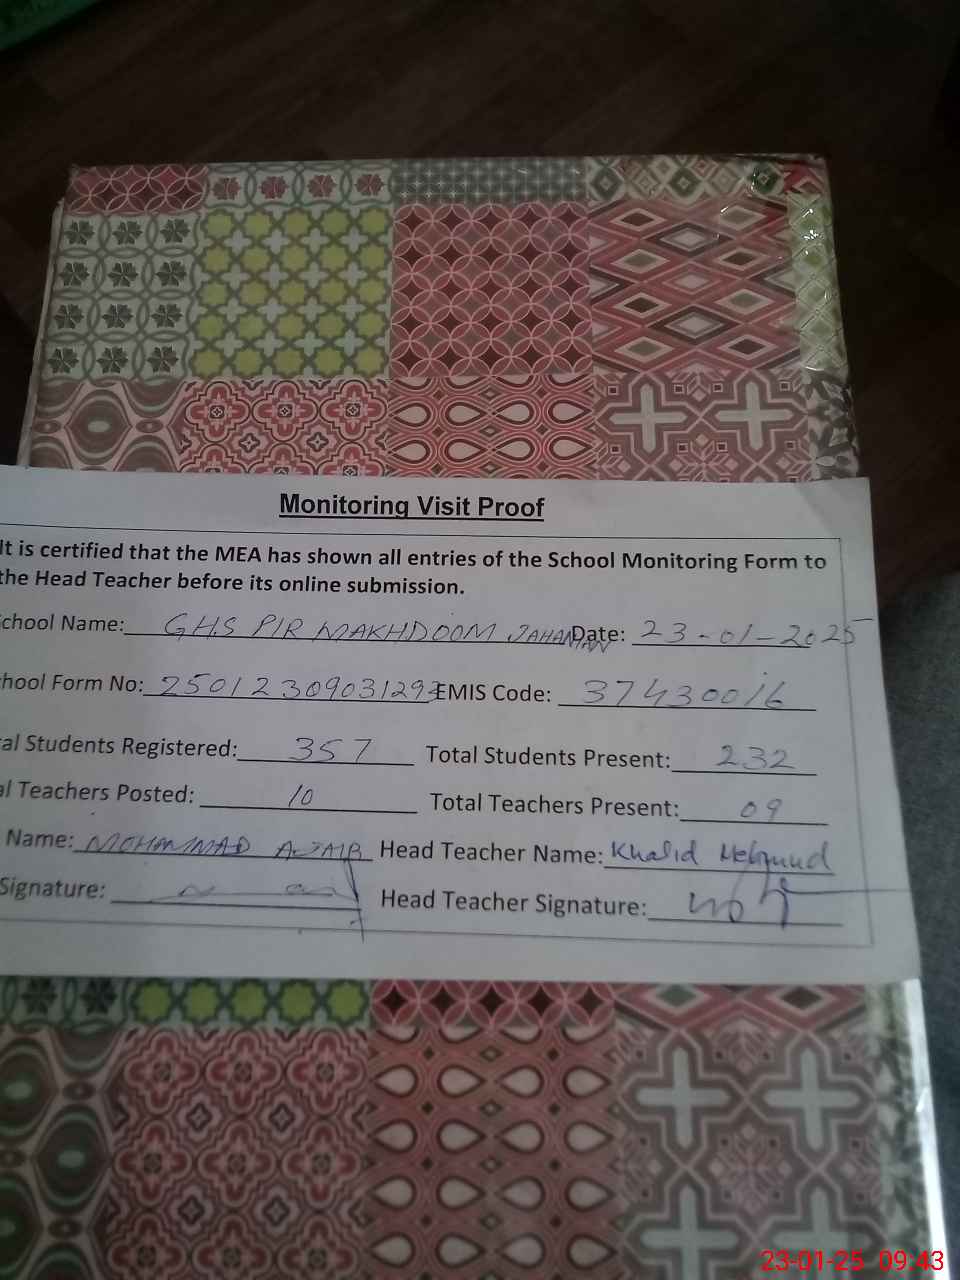 Monitoring Visit Proof
It is certified that the MEA has shown all entries of the School Monitoring Form to
the Head Teacher before its online submission.
chool Name: GHS PIR MAKHDOOM JAHANIAN Date: 23-01-2025
hool Form No: 25012309031293 EMIS Code: 37430016
al Students Registered: 357 Total Students Present: 232
al Teachers Posted: 10 Total Teachers Present: 09
Name: MOHAMMAD Head Teacher Name: Khalid Mehmud
Signature: Head Teacher Signature:
23-01-25 09:43